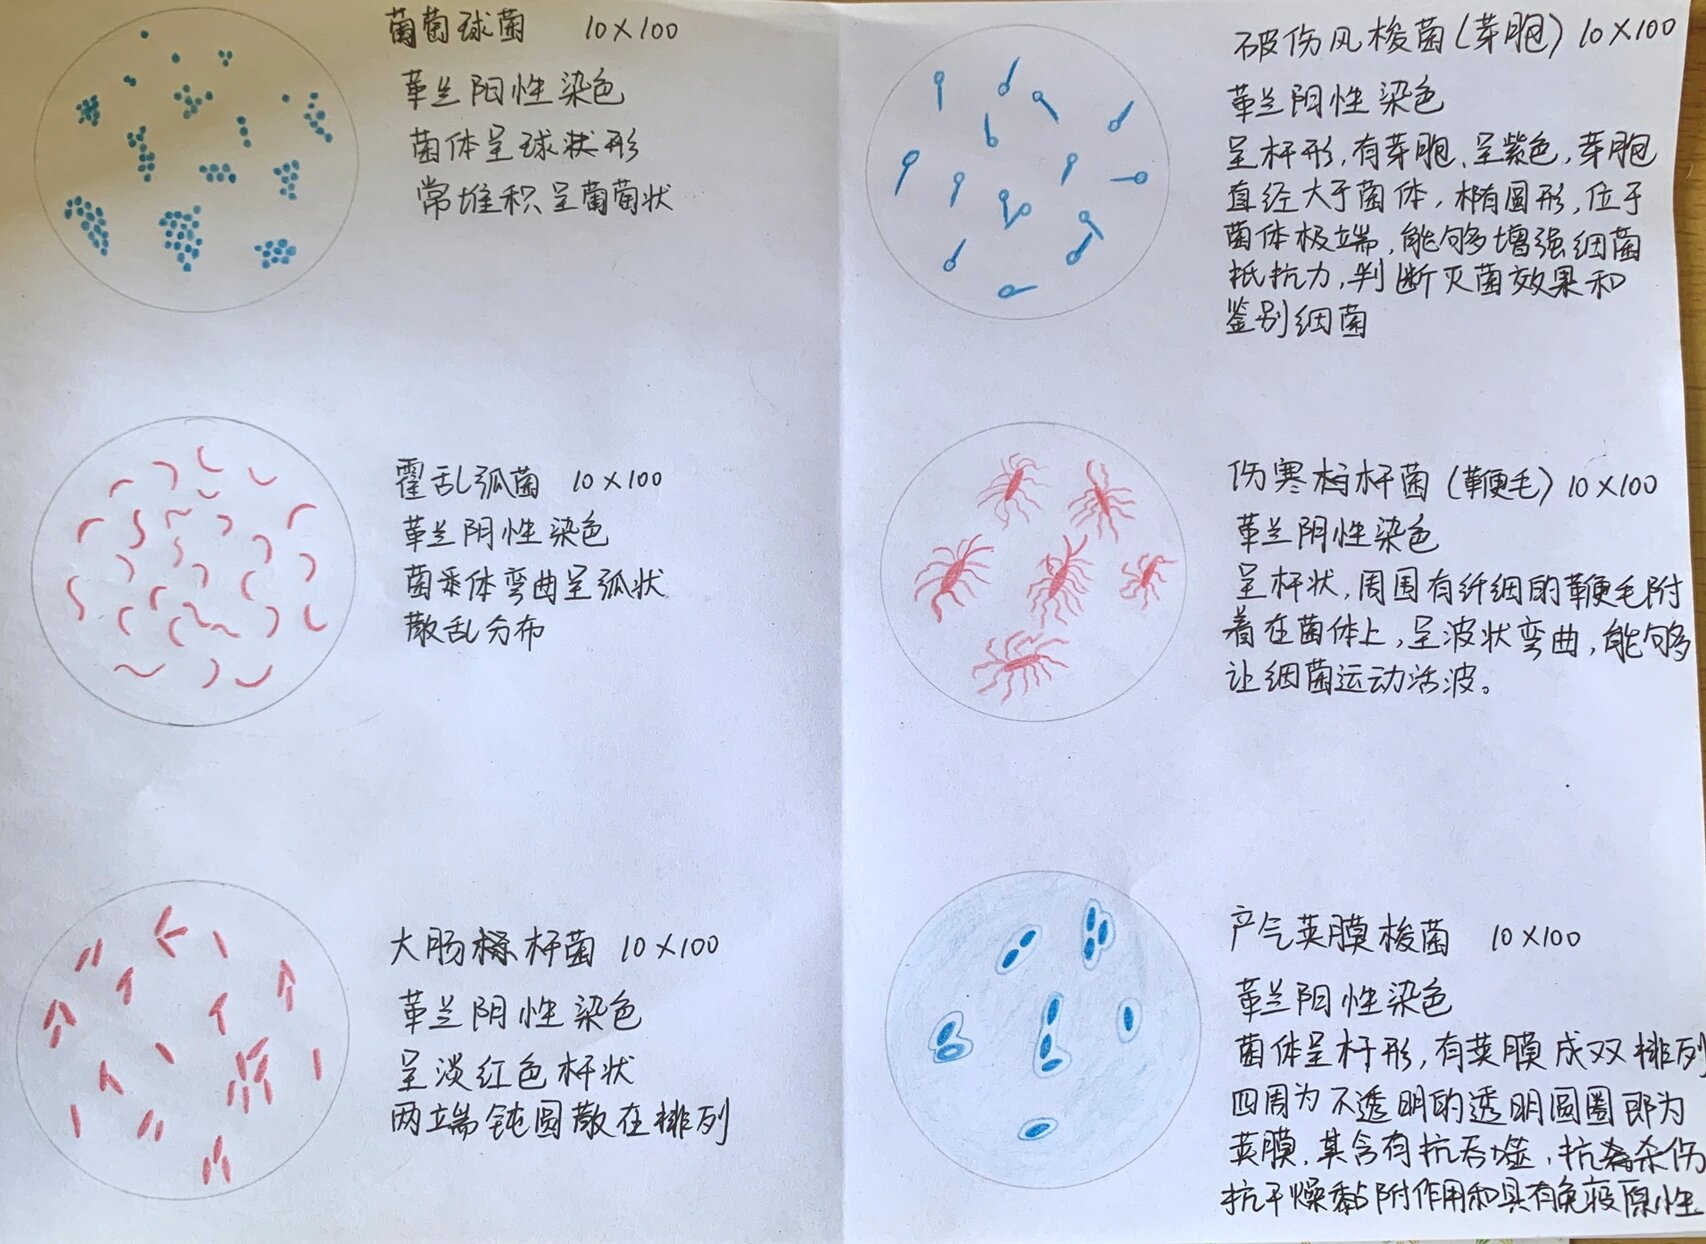 葡萄球菌 10×100
革兰阳性染色
菌体呈球状形
常堆积呈葡萄状
破伤风梭菌(芽胞) 10×100
革兰阳性染色
呈杆形,有芽胞、呈紫色,芽胞
直经大于菌体,椭圆形,位于
菌体极端,能够增强细菌
抵抗力,判断灭菌效果和
鉴别细菌
霍乱弧菌 10×100
革兰阴性染色
菌体弯曲呈弧状
散乱分布
伤寒杆菌(鞭毛) 10×100
革兰阴性染色
呈杆状,周围有纤细的鞭毛附
着在菌体上,呈波状弯曲,能够
让细菌运动活波。
大肠杆菌 10×100
革兰阴性染色
呈淡红色杆状
两端钝圆散在排列
产气荚膜梭菌 10×100
革兰阳性染色
菌体呈杆形,有荚膜成双排列
四周为不透明的透明圆圈即为
荚膜,其含有抗吞噬、抗杀伤
抗干燥黏附作用和具有免疫原性